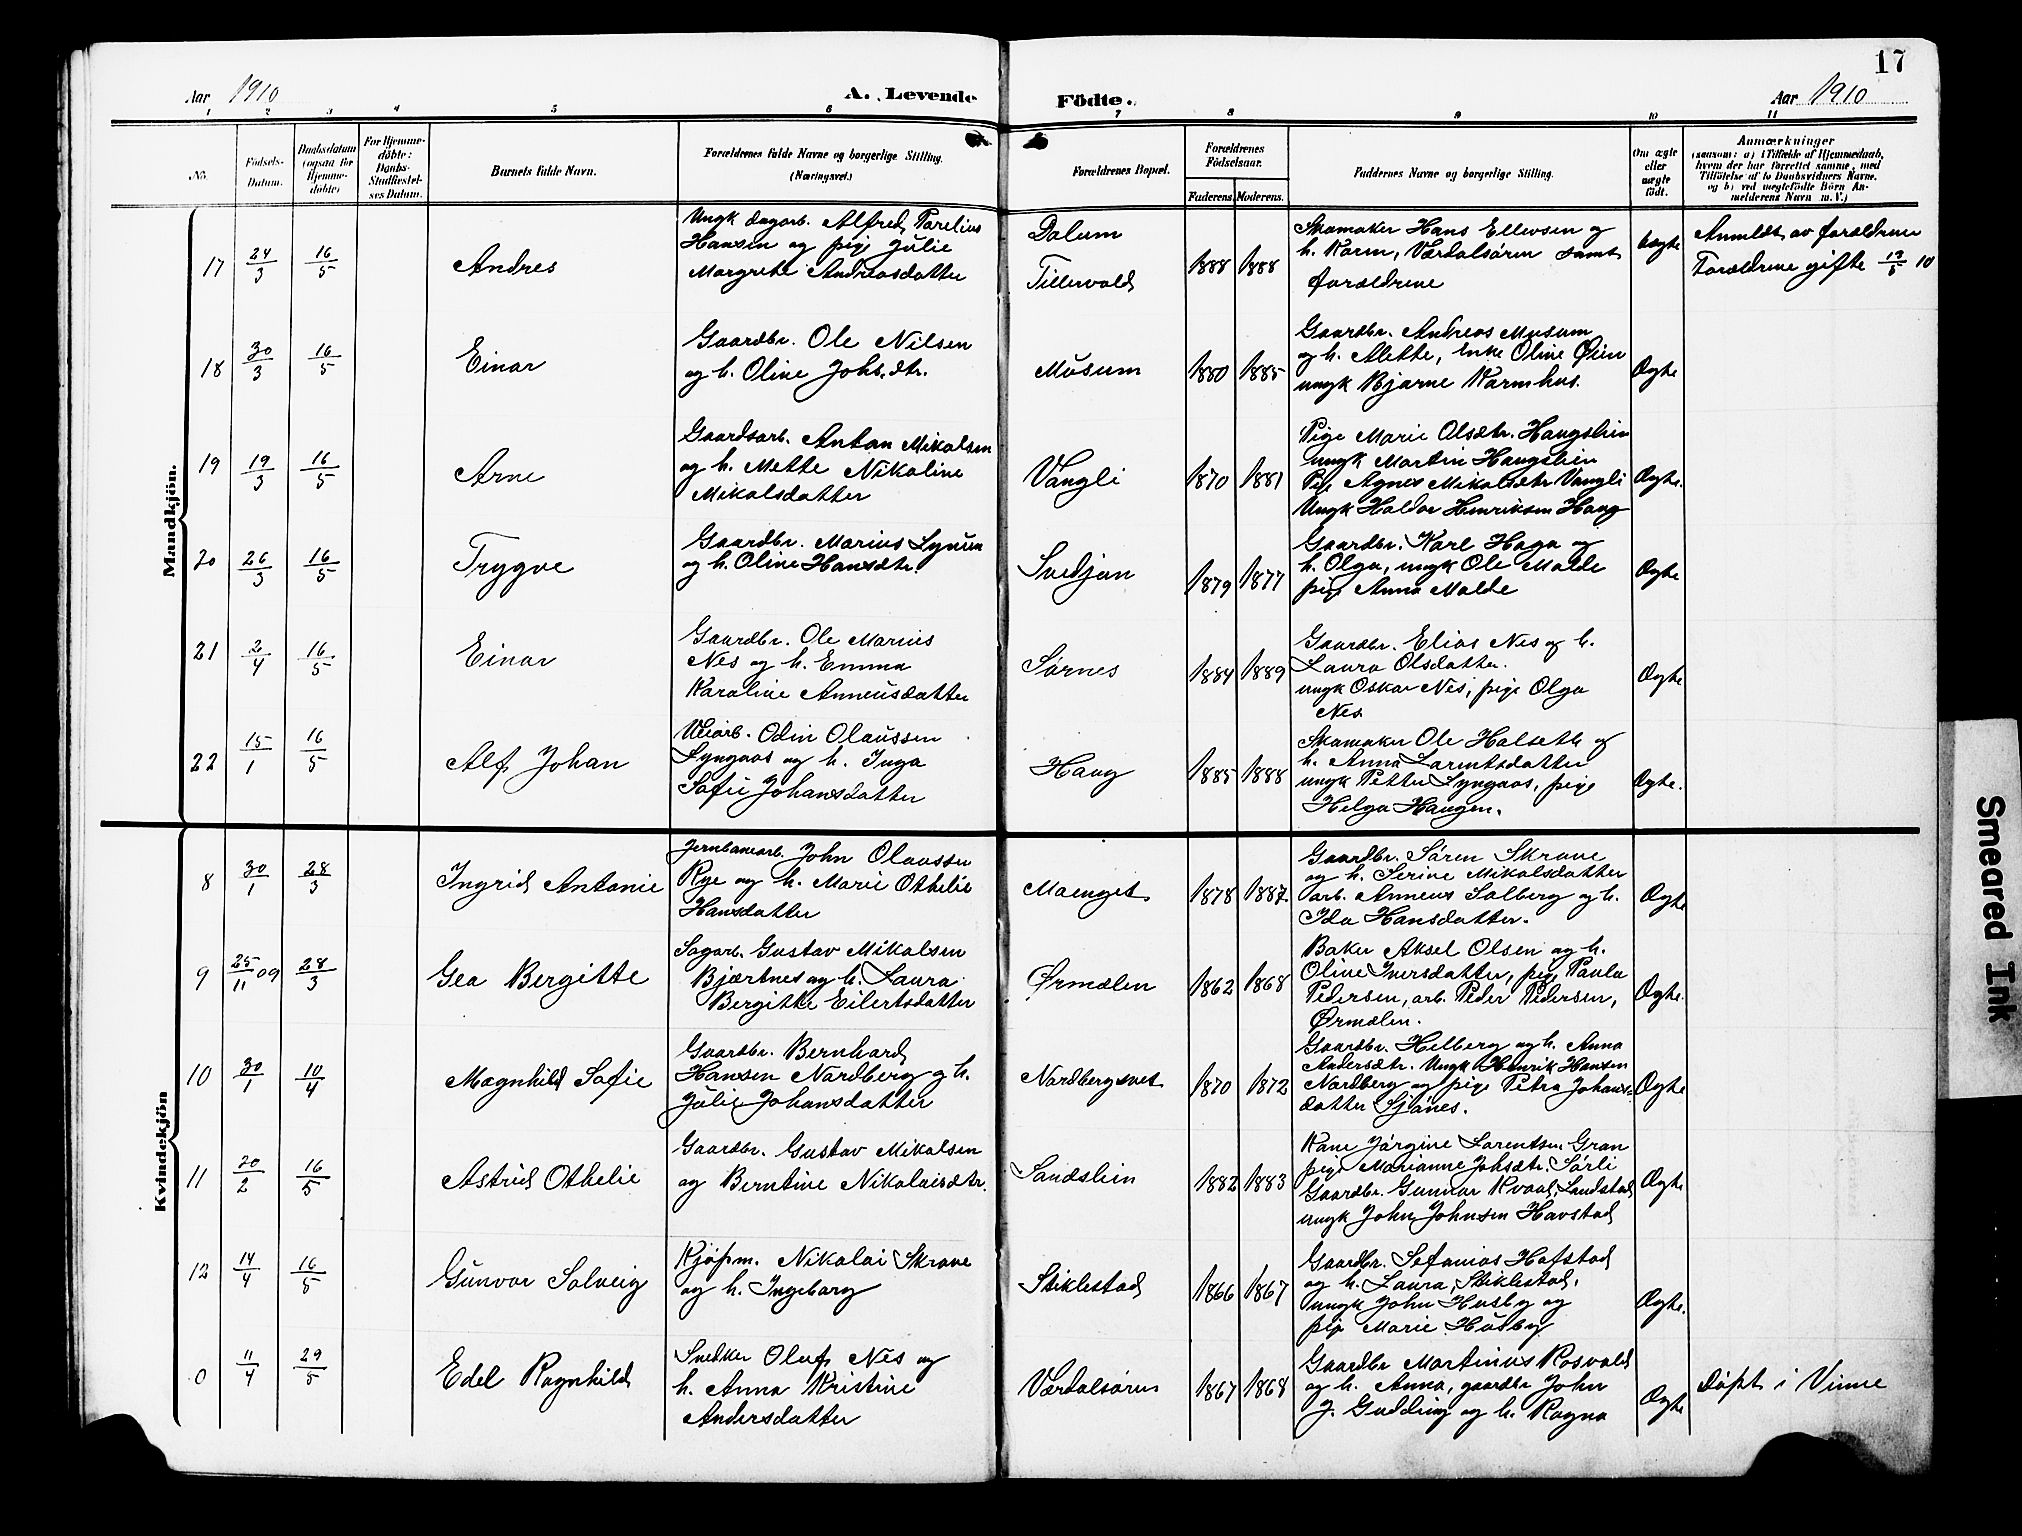 17
Aar 1910 A. Levende Födte. Aar 1910
1 2 3 4 5 6 7 8 9 10 11
No. Födsels-Datum. Daabsdatum (ogsaa for Hjemme-döbte) For Hjemme-döbte: Daabs-Stadfæstel-ses Datum. Barnets fulde Navn. Forældrenes fulde Navne og borgerlige Stilling. (Næringsvei.) Forældrenes Bopæl. Forældrenes Födselsaar. Faderens. Moderens. Faddernes Navne og borgerlige Stilling. Om ægte eller uægte födt. Anmærkninger (saasom: a) i Tilfælde af Hjemmedaab, hvem der har forrettet samme, med Tilföielse af to Daabsvidners Navne, og b) ved uægtefödte Börn An-melderens Navn m. V.)
Mandkjön.
17 24/3 16/5 Andres
Ungk dagarb. Alfred Torelius
Hansen og pige Julie
Margrete Andreasdatter
Dalum
Tillervold
1888 1888
Skomaker Hans Ellevsen og
h. Karen, Værdalsøren samt
forældrene
Uægte
Anmeldt av forældrene
Forældrene gifte 10
18 30/3 16/5 Einar
Gaardbr. Ole Nilsen
og h. Oline Johs.dtr.
Musum
1880 1885
Gaardbr. Andreas Musum
og h. Alette, enke Oline Øien
ungk Bjarne Karmhus.
Ægte
19 19/3 16/5 Arne
Gaardsarb. Anton Mikalsen
og h. Mette Nikoline
Mikalsdatter
Vangli
1870 1881
Pige Marie Olsdtr. Haugslien
ungk Martin Haugslien
Pige Agnes Mikalsdtr Vangli
Ungk Haldor Henriksen Haug
Ægte.
20 26/3 16/5 Trygve
Gaardbr. Marius
og h. Oline Hansdtr.
Svedjan
1879 1877
Gaardbr. Karl Haga og
h. Olga, ungk Ole Malde
pige Anna Malde
Ægte
21 2/4 16/5 Einar
Gaardbr. Ole Marius
Nes og h. Emma
Karoline Anneusdatter
Sørnes
1884 1889
Gaardbr. Elias Nes og h.
Laura Olsdatter.
ungk Oskar Nes, pige Olga
Nes
Ægte
22 15/1 16/5 Alf Johan
Veiarb. Odin Olaussen
Lyngaas og h. Inga
Sofie Johansdatter
Haug
1885 1888
Skomaker Ole Halseth og
h. Anna Larentsdatter
ungk Petter Lyngaas, pige
Helga Haugen.
Ægte.
Kvindekjön
8 30/1 28/3 Ingrid Antonie
Jernbanearb. John Olaussen
Rye og h. Marie Othelie
Hansdatter
Maenget
1878 1887
Gaardbr. Søren Skrove
og h. Serine Mikalsdatter
arb. Anneus Solberg og h.
Ida Hansdatter.
Ægte
9 25/11 09 28/3 Gea Bergitte
Sagarb. Gustav Mikalsen
Bjærtnes og h. Laura
Bergitte Eilertsdatter
Ørmælen
1862 1868
Baker Aksel Olsen og h.
Oline Iversdatter, pige Paula
Pedersen, arb. Peder Pedersen,
Ørmælen.
Ægte.
10 30/1 10/4 Magnhild Sofie
Gaardbr. Bernhard
Hansen Nordberg og h.
Julie Johansdatter
Nordbergsvet
1870 1872
Gaardbr. Helberg og h. Anna
Andersdtr. Ungk Henrik Hansen
Nordberg og pige Petra Johans-
datter Sjønes.
Ægte
11 20/2 16/5 Astrid Othelie
Gaardbr. Gustav Mikalsen
og Berntine Nikolaisdtr.
Sandslien
1882 1883
Kone Jørgine Larentsen Gran
pige Marianne Johsdtr. Sørli
Gaardbr. Gunnar Kvaal, Landstad
ungk John Johnsen Havstad
Ægte
12 14/4 16/5 Gunvor Solveig
Kjøpm. Nikolai Skrove
og h. Ingeborg
Stiklestad
1866 1867
Gaardbr. Sefanias Hofstad
og h. Laura, Stiklestad,
ungk John Husby og
pige Marie Husby
Ægte.
0 11/4 29/5 Edel Ragnhild
Snedker Oluf Nes og
h. Anna Kristine
Andersdatter
Værdalsøren
1867 1868
Gaardbr Martinus Rosvold
og h. Anna, gaardbr John
J. Gudding og h. Ragna
Ægte
Døpt i Vinne
Smeared Ink